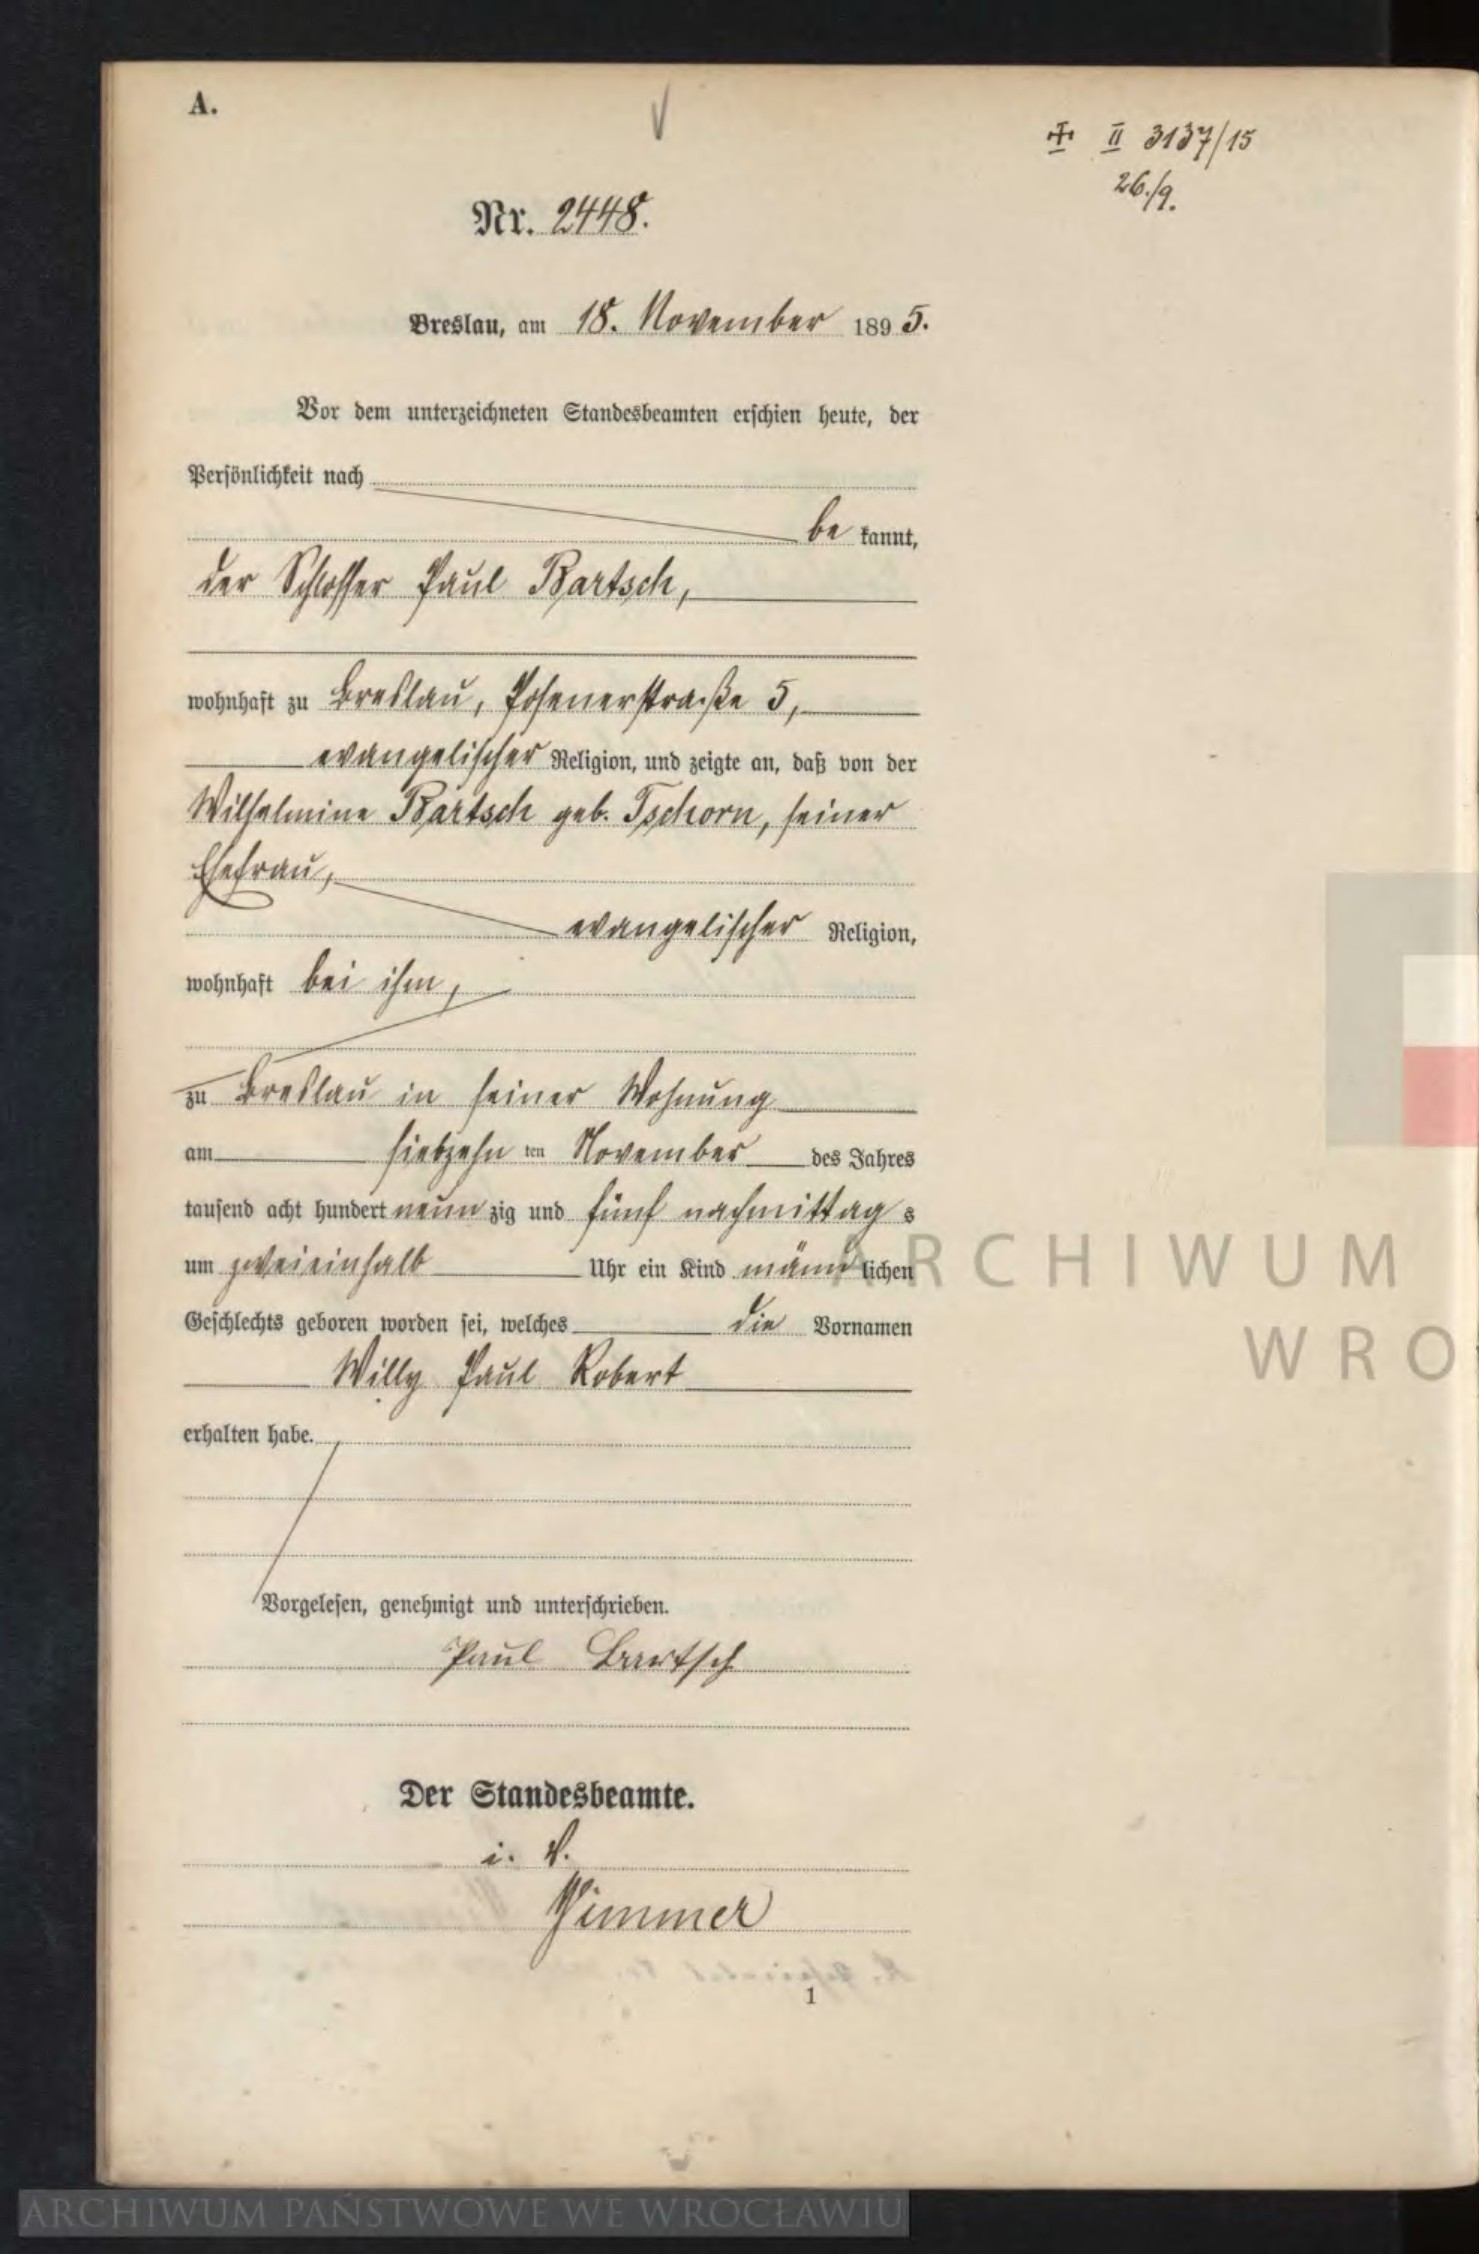 A.
II 3137/15
26./9.
Nr. 2448.
Breslau, am 18. November 1895.
Vor dem unterzeichneten Standesbeamten erschien heute, der
Persönlichkeit nach
be kannt,
der Schlosser Paul Bartsch,
wohnhaft zu Breslau, Posenerstraße 5,
evangelischer Religion, und zeigte an, daß von der
Wilhelmine Bartsch geb. Tschorn, seiner
Ehefrau,
evangelischer Religion,
wohnhaft bei ihm,
zu Breslau in seiner Wohnung
am siebzehn ten November des Jahres
tausend acht hundert neun zig und fünf nachmittag s
um zweieinhalb Uhr ein Kind männ lichen
Geschlechts geboren worden sei, welches die Vornamen
Willy Paul Robert
erhalten habe.
Vorgelesen, genehmigt und unterschrieben.
Paul Bartsch
Der Standesbeamte.
i. V.
1
ARCHIWUM
WRO
ARCHIWUM PAŃSTWOWE WE WROCŁAWIU